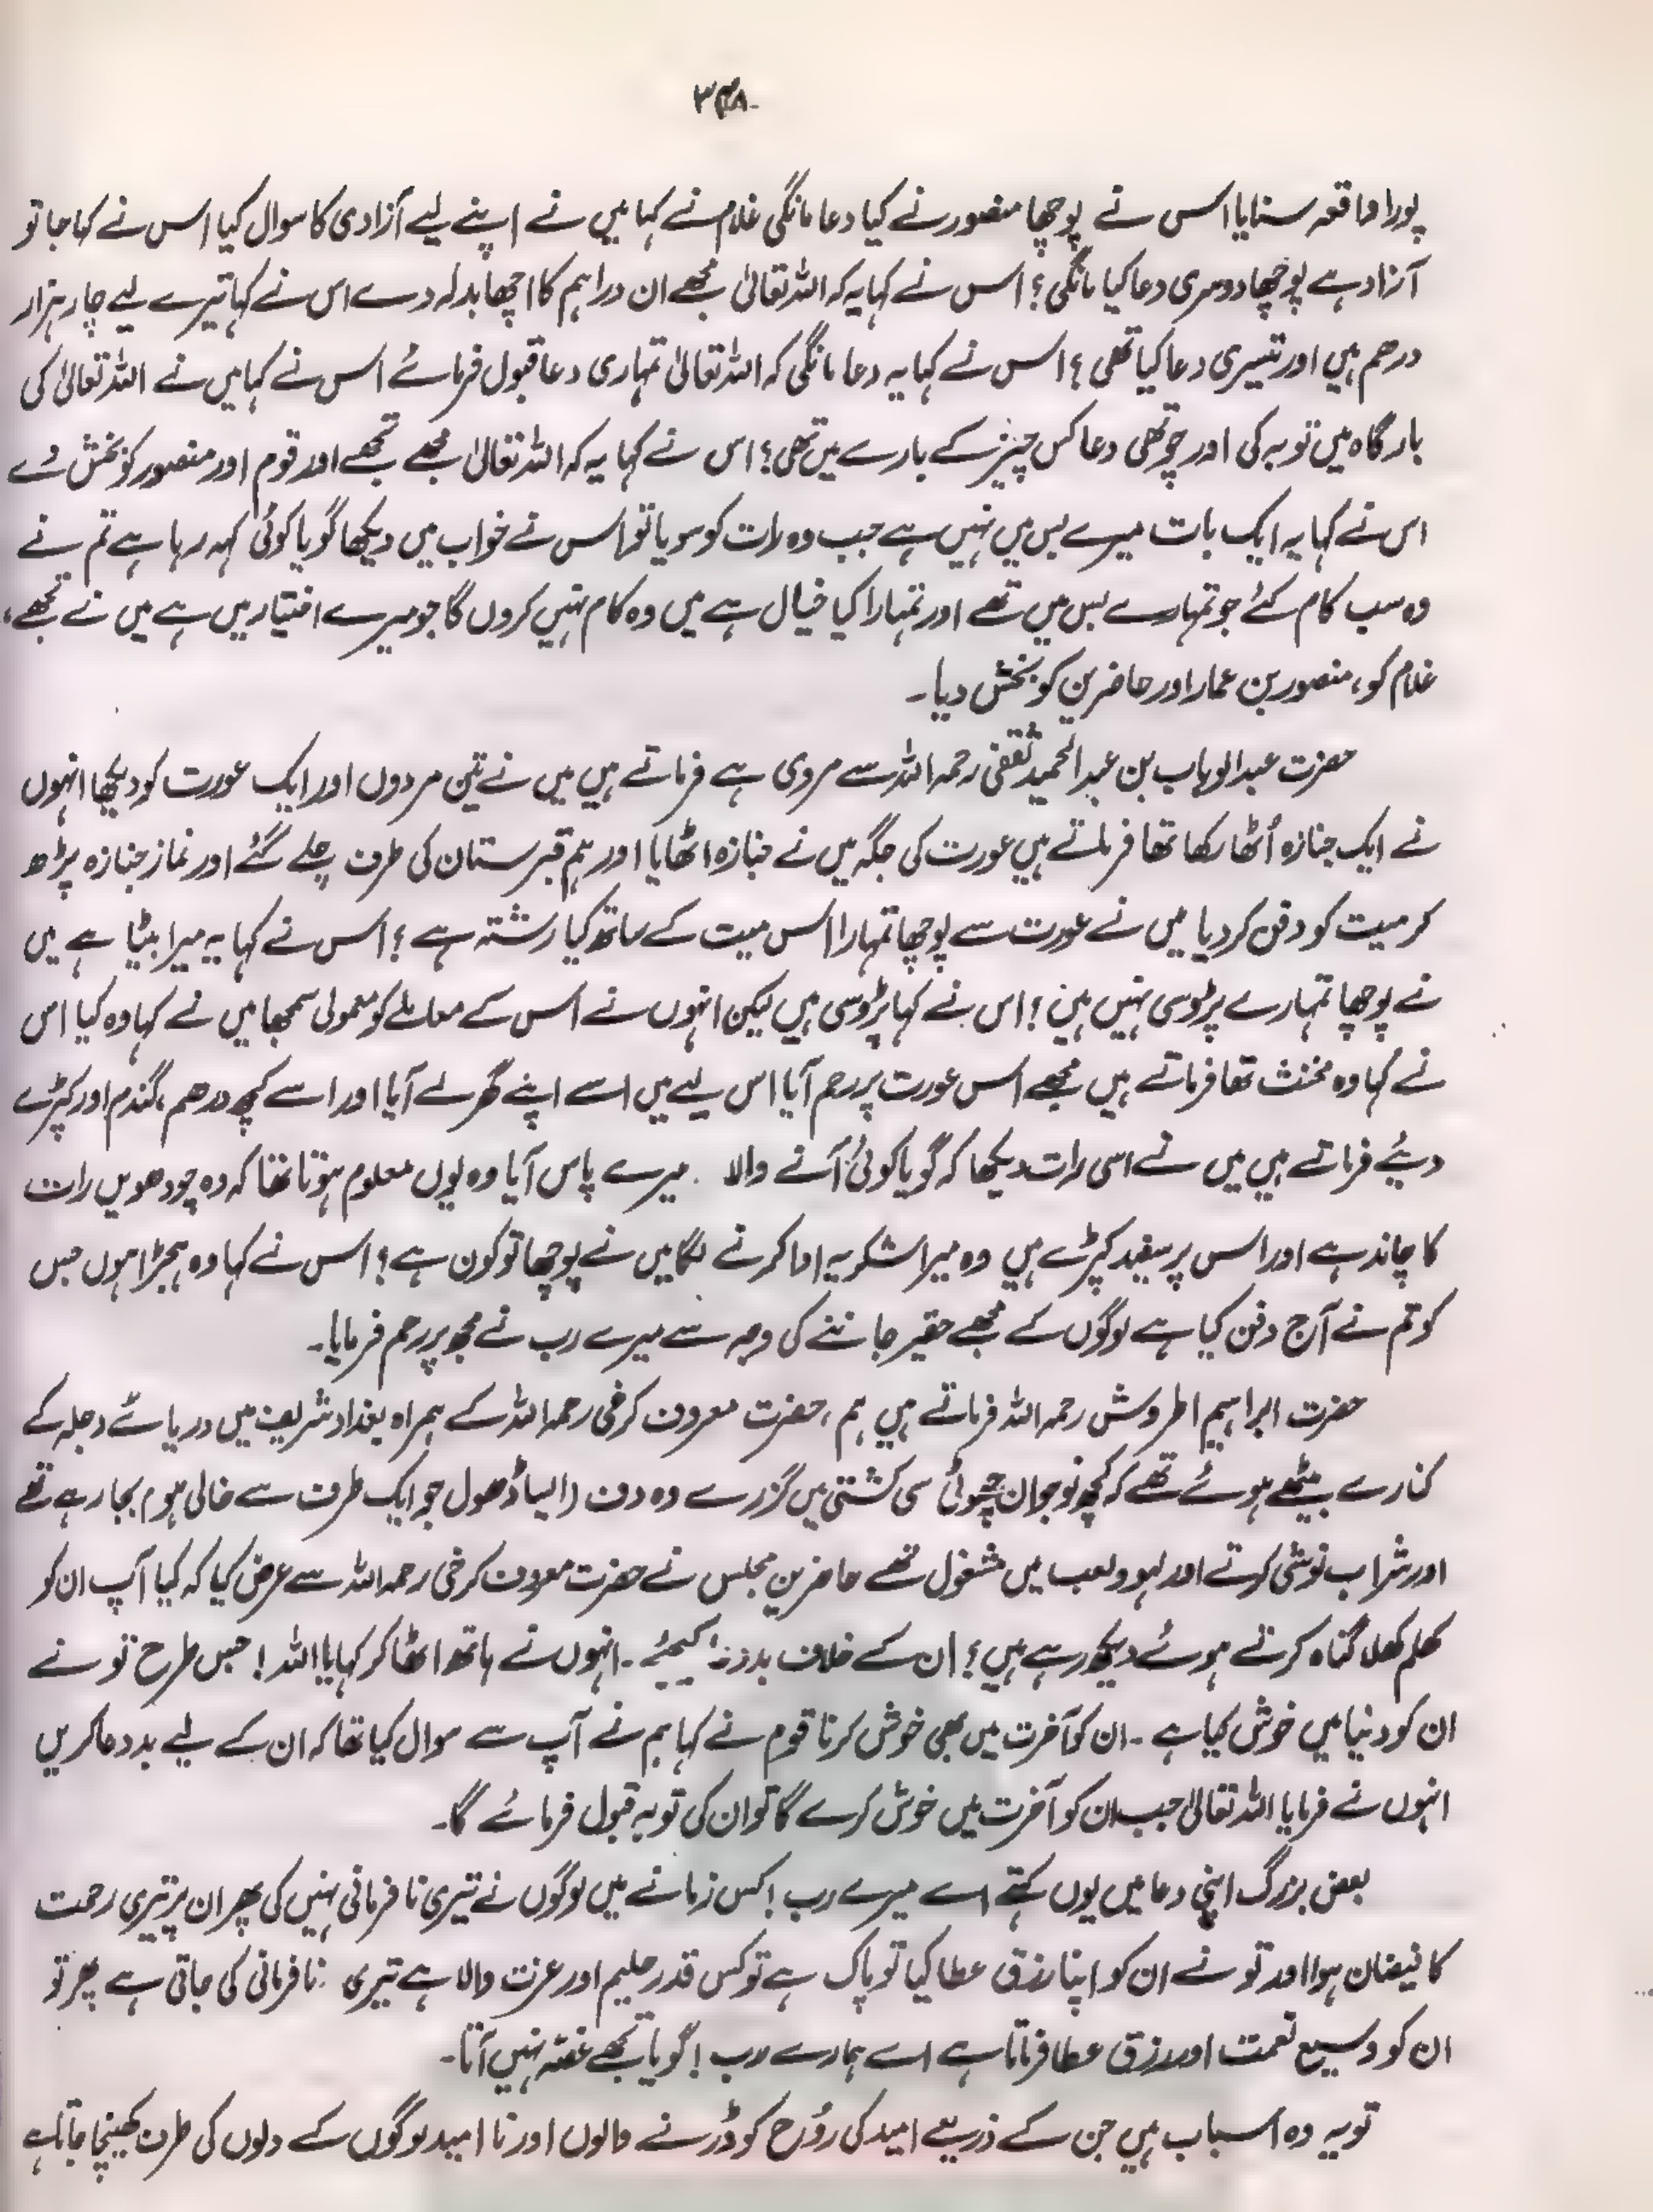 ۳۴۸
پورا واقعہ سنایا اس نے پوچھا منصور نے کیا دعا مانگی غلام نے کہا میں نے اپنے لیے آزادی کا سوال کیا اس نے کہا جا تو
آزاد ہے پوچھا دوسری دعا کیا مانگی؟ اس نے کہا یہ کہ اللہ تعالیٰ مجھے ان دراہم کا اچھا بدلہ دے اس نے کہا تیرے لیے چار ہزار
درھم ہیں اور تیسری دعا کیا تھی؟ اس نے کہا یہ دعا مانگی کہ اللہ تعالیٰ تمہاری دعا قبول فرمائے اس نے کہا میں نے اللہ تعالیٰ کی
بارگاہ میں توبہ کی اور چوتھی دعا کس چیز کے بارے میں تھی؟ اس نے کہا یہ کہ اللہ تعالیٰ مجھے تجھے اور قوم اور منصور کو بخش دے
اس نے کہا یہ ایک بات میرے بس میں نہیں ہے جب وہ رات کو سویا تو اس نے خواب میں دیکھا گویا کوئی کہہ رہا ہے تم نے
وہ سب کام کئے جو تمہارے بس میں تھے اور تمہارا کیا خیال ہے میں وہ کام نہیں کروں گا جو میرے اختیار میں ہے میں نے تجھے،
غلام کو، منصور بن عمار اور حاضرین کو بخش دیا۔
حضرت عبدالوہاب بن عبدالحمید ثقفی رحمہ اللہ سے مروی ہے فرماتے ہیں میں نے تین مردوں اور ایک عورت کو دیکھا انہوں
نے ایک جنازہ اُٹھا رکھا تھا فرماتے ہیں عورت کی جگہ میں نے جنازہ اٹھایا اور ہم قبرستان کی طرف چلے گئے اور نماز جنازہ پڑھ
کر میت کو دفن کر دیا میں نے عورت سے پوچھا تمہارا اس میت کے ساتھ کیا رشتہ ہے؟ اس نے کہا یہ میرا بیٹا ہے میں
نے پوچھا تمہارے پڑوسی نہیں ہیں؟ اس نے کہا پڑوسی ہیں لیکن انہوں نے اس کے معاملے کو معمولی سمجھا میں نے کہا وہ کیا اس
نے کہا وہ مخنث تھا فرماتے ہیں مجھے اس عورت پر رحم آیا اس لیے میں اسے اپنے گھر لے آیا اور اسے کچھ درھم، گندم اور کپڑے
دیئے فرماتے ہیں میں نے اسی رات دیکھا کہ گویا کوئی آنے والا میرے پاس آیا وہ یوں معلوم ہوتا تھا کہ وہ چودھویں رات
کا چاند ہے اور اس پر سفید کپڑے ہیں وہ میرا شکریہ ادا کرنے لگا میں نے پوچھا تو کون ہے؟ اس نے کہا وہ ہیجڑا ہوں جس
کو تم نے آج دفن کیا ہے لوگوں کے مجھے حقیر جاننے کی وجہ سے میرے رب نے مجھ پر رحم فرمایا۔
حضرت ابراہیم اطروش رحمہ اللہ فرماتے ہیں ہم، حضرت معروف کرخی رحمہ اللہ کے ہمراہ بغداد شریف میں دریائے دجلہ کے
کنارے بیٹھے ہوئے تھے کہ کچھ نوجوان چھوٹی سی کشتی میں گزرے وہ دف (ایسا ڈھول جو ایک طرف سے خالی ہو) بجا رہے تھے
اور شراب نوشی کرتے اور لہو و لعب میں مشغول تھے حاضرین مجلس نے حضرت معروف کرخی رحمہ اللہ سے عرض کیا کہ کیا آپ ان کو
کھلم کھلا گناہ کرتے ہوئے دیکھ رہے ہیں؟ ان کے خلاف کیجئے۔ انہوں نے ہاتھ اٹھا کر کہا یا اللہ! جس طرح تو نے
ان کو دنیا میں خوش کیا ہے۔ ان کو آخرت میں بھی خوش کرنا قوم نے کہا ہم نے آپ سے سوال کیا تھا کہ ان کے لیے بد دعا کریں
انہوں نے فرمایا اللہ تعالیٰ جب ان کو آخرت میں خوش کرے گا تو ان کی توبہ قبول فرمائے گا۔
بعض بزرگ اپنی دعا میں یوں کہتے اے میرے رب! کس زمانے میں لوگوں نے تیری نافرمانی نہیں کی پھر ان پر تیری رحمت
کا فیضان ہوا اور تو نے ان کو اپنا رزق عطا کیا تو پاک ہے تو کس قدر حلیم اور عزت والا ہے تیری نافرمانی کی جاتی ہے پھر تو
ان کو وسیع نعمت اور رزق عطا فرماتا ہے اے ہمارے رب! گویا تجھے غصّہ نہیں آتا۔
تو یہ وہ اسباب ہیں جن کے ذریعے امید کی رُوح کو ڈرنے والوں اور نا امید لوگوں کے دلوں کی طرف کھینچا جاتا ہے